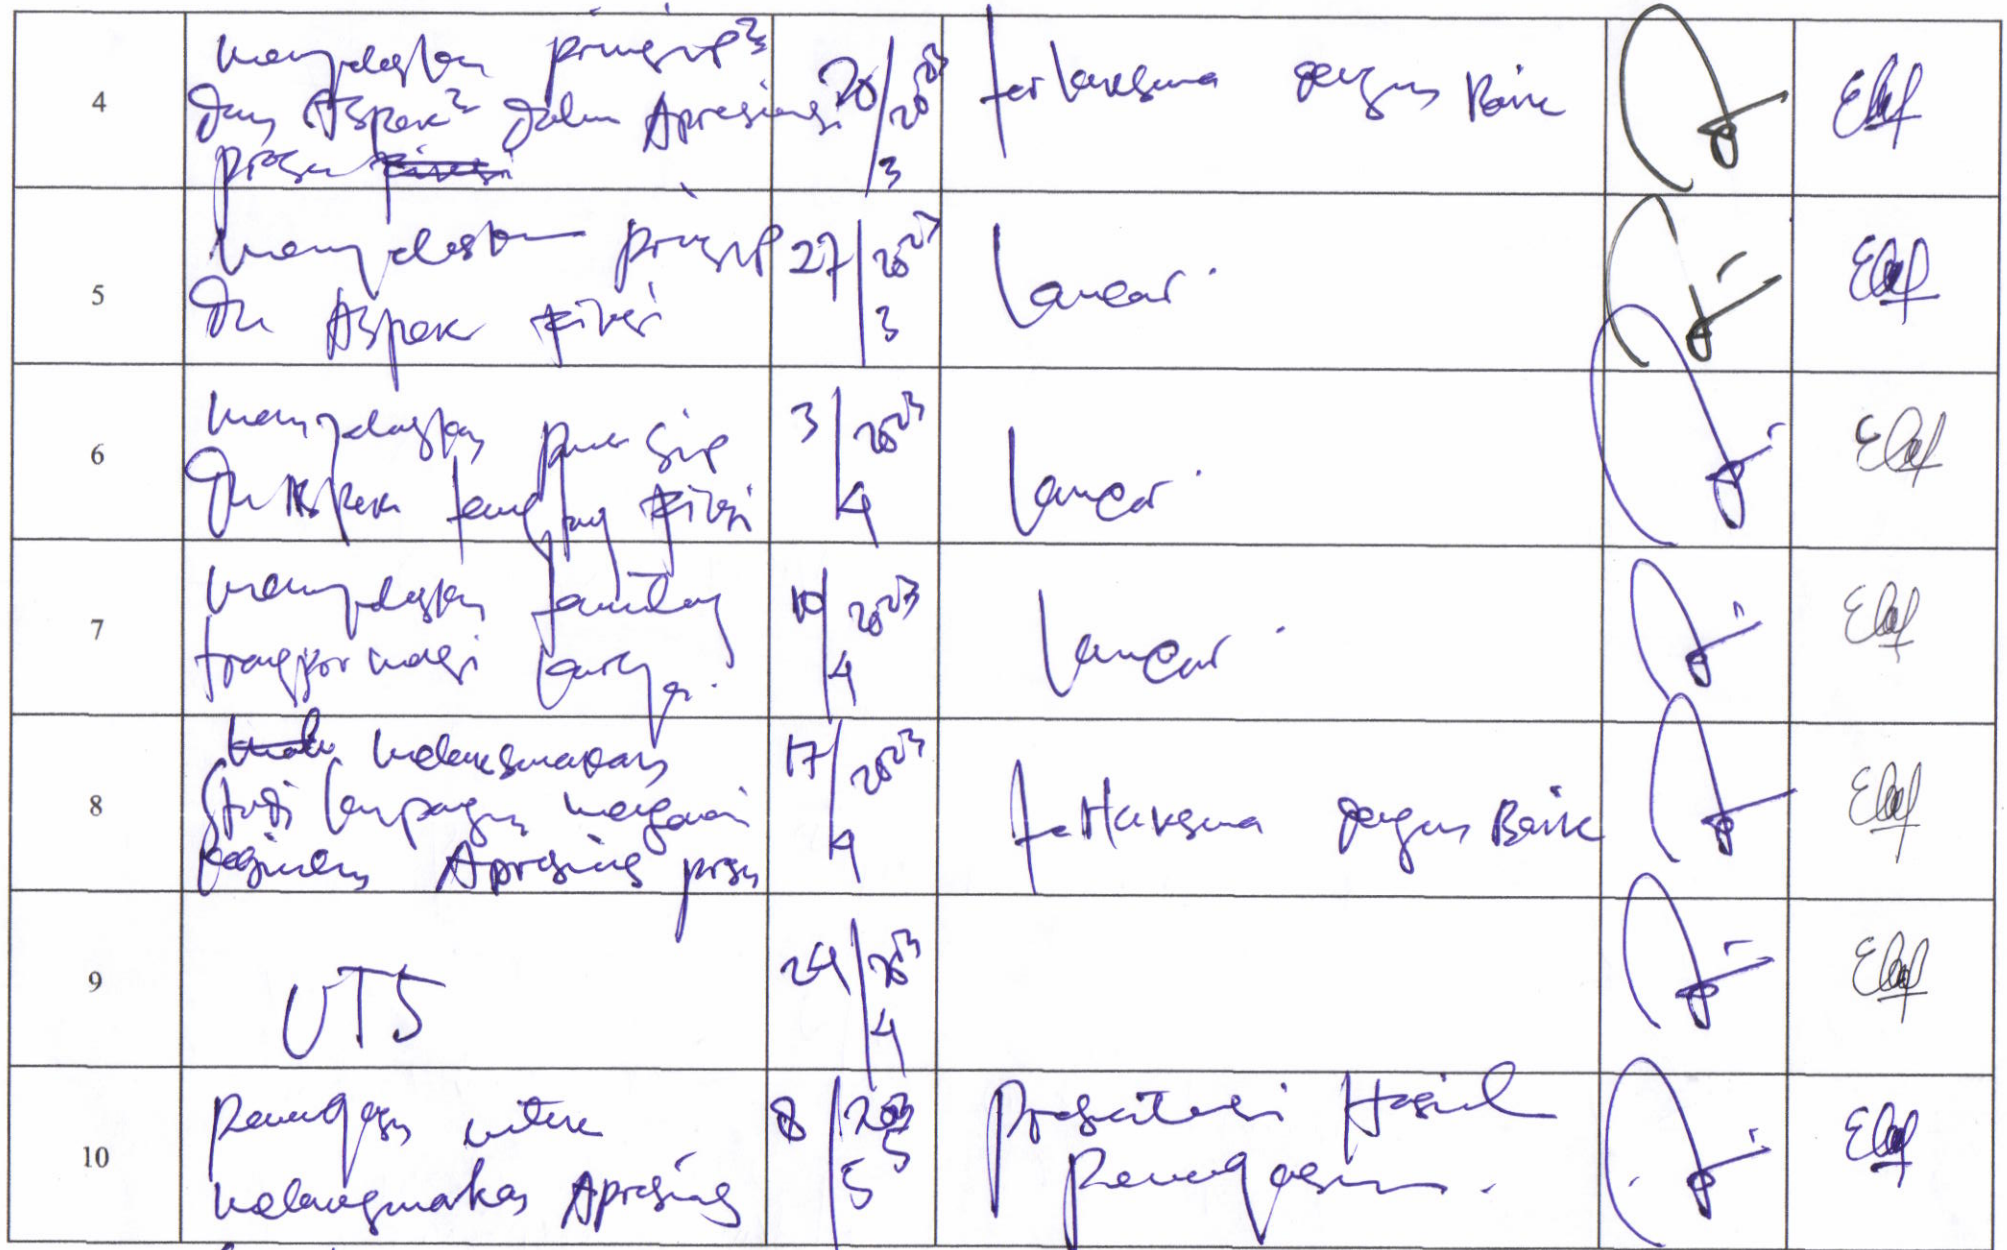 4
menjelaskan prinsip²
dan Aspek² dalam Apresiasi
prosa
20/2023
3
terlaksana dengan Baik
5
menjelaskan prinsip
dan Aspek
27/2023
3
Lancar.
6
menjelaskan prinsip
dan Aspek tentang
3/2023
4
Lancar.
7
menjelaskan tentang
transformasi karya.
10/2023
4
Lancar.
8
melaksanakan
studi lapangan mengenai
kegiatan Apresiasi prosa
17/2023
4
terlaksana dengan Baik
9
UTS
24/2023
4
10
Penugasan untuk
melaksanakan Apresiasi
8/2023
5
Presentasi Hasil
Penugasan.